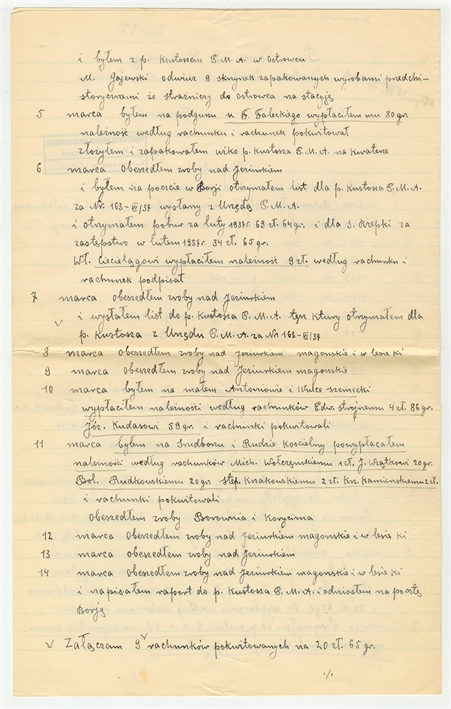 i byłem z p. Kustoszem P.M.A. w Ostrowcu
M. Gajewski odwiuz 9 skrynek zapakowanych wyrobami predchi-
storycznemi ze strażnicy do ostrowca na stacyją
5 marca byłem na podgurzu u F. Sałeckiego wypłaciłem mu 80 gr.
należność według rachunku i rachunek pokwitował
złożyłem i zapakowałem wiko p. Kustosza P.M.A. na kwaterze
6 marca obeszedłem zroby nad Jeziurkiem
i byłem na poczcie w Borji otrzymałem list dla p. Kustosza P.M.A.
za Nr. 163-VI/37 wysłany z Urzędu P.M.A.
i otrzymałem pobur za luty 1937 r. 69 zł. 64 gr. i dla S. Rzepki za
zastępstwo w lutem 1937 r. 34 zł. 65 gr.
Wł. Ciecielągowi wypłaciłem należność 9 zł. według rachunku i
rachunek podpisał
7 marca obeszedłem zroby nad Jeziurkiem
v i wysłałem list do p. Kustosza P.M.A. tęn ktury otrzymałem dla
p. Kustosza z Urzędu P.M.A. za Nr 163-VI/37
8 marca obeszedłem zroby nad Jeziurkiem magonskie i w lesie ki
9 marca obeszedłem zroby nad Jeziurkiem magonskie
10 marca byłem na małem Antoniowie i Wulce
wypłaciłem należności według rachunków Edw. strojnemu 4 zł. 86 gr.
Józ. Kudasowi 59 gr. i rachunki pokwitowali
11 marca byłem na Grudboru i Rudzie Koscielny powypłacałem
należności według rachunków Mich. 1 zł. J. Wziątkowi 20 gr.
Bol. Rudkowskiemu 20 gr. stef. Knakowskiemu 2 zł. Krz. Kamienskiemu 2 zł.
i rachunki pokwitowali
Obeszedłem zroby Borownia i Korycizna
12 marca obeszedłem zroby nad Jeziurkiem magonskie i w lesie ki
13 marca obeszedłem zroby nad Jeziurkiem
14 marca obeszedłem zroby nad Jeziurkiem magonskie i w lesie ki
i napisałem raport do p. Kustosza P.M.A. i odniosłem na pocztę
Borją
v Załączam 9 v rachunków pokwitowanych na 20 zł. 65 gr.
·/·